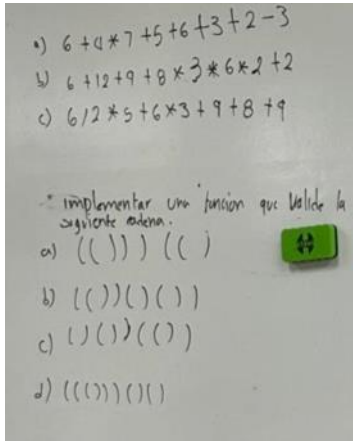 a) 6+4*7+5+6+3+2-3
b) 6+12+9+8*3*6*2+2
c) 6/2*5+6*3+9+8+9
* implementar una función que valide la
siguiente cadena.
a) (())) (( )
b) (())()())
c) ()())(())
d) ((()))()()